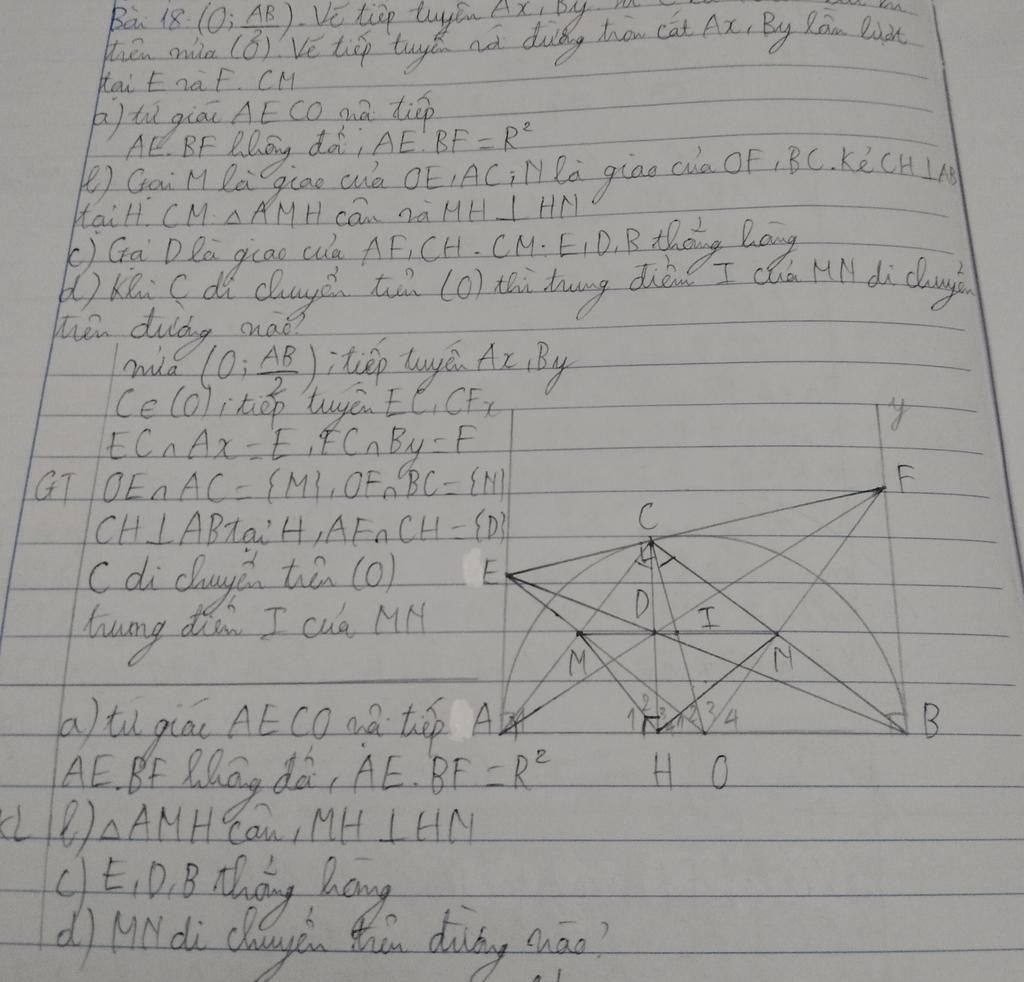 Bài 18. (O; AB/2). Vẽ tiếp tuyến Ax, By.
trên nửa (O). Vẽ tiếp tuyến đường tròn cắt Ax, By lần lượt
tại E và F. CM
a) tứ giác AECO nội tiếp
AE.BF không đổi, AE.BF = R²
b) Gọi M là giao của OE, AC; N là giao của OF, BC. Kẻ CH ⊥ AB
tại H. CM: △AMH cân và MH ⊥ HN
c) Gọi D là giao của AF, CH. CM: E, D, B thẳng hàng
d) Khi C di chuyển trên (O) thì trung điểm I của MN di chuyển
trên đường nào?
nửa (O; AB/2); tiếp tuyến Ax, By
C ∈ (O); tiếp tuyến EC, CF
EC ∩ Ax = E, FC ∩ By = F
GT OE ∩ AC = {M}, OF ∩ BC = {N}
CH ⊥ AB tại H, AF ∩ CH = {D}
C di chuyển trên (O)
trung điểm I của MN
x y
F
C
E
D I
M N
A 1 2 3 1 2 3 4 B
H O
a) tứ giác AECO nội tiếp
AE.BF không đổi, AE.BF = R²
KL b) △AMH cân, MH ⊥ HN
c) E, D, B thẳng hàng
d) MN di chuyển trên đường nào?